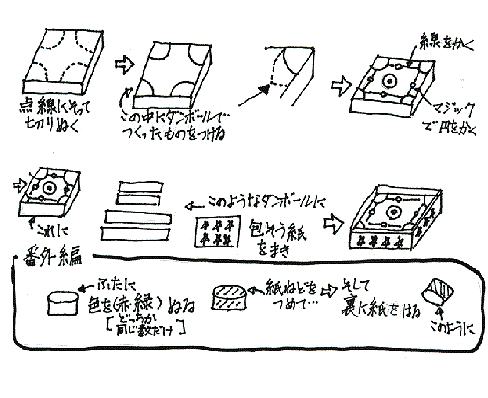 点線にそって
切りぬく
この中にダンボールで
つくったものをつける
線をかく
マジック
で円をかく
これに
このようなダンボールに
包そう紙
をまき
番外編
ふたに
色を(赤 緑)ぬる
[どっちか
同じ数だけ]
紙ねんどを
つめて…
そして
裏に紙をはる
このように